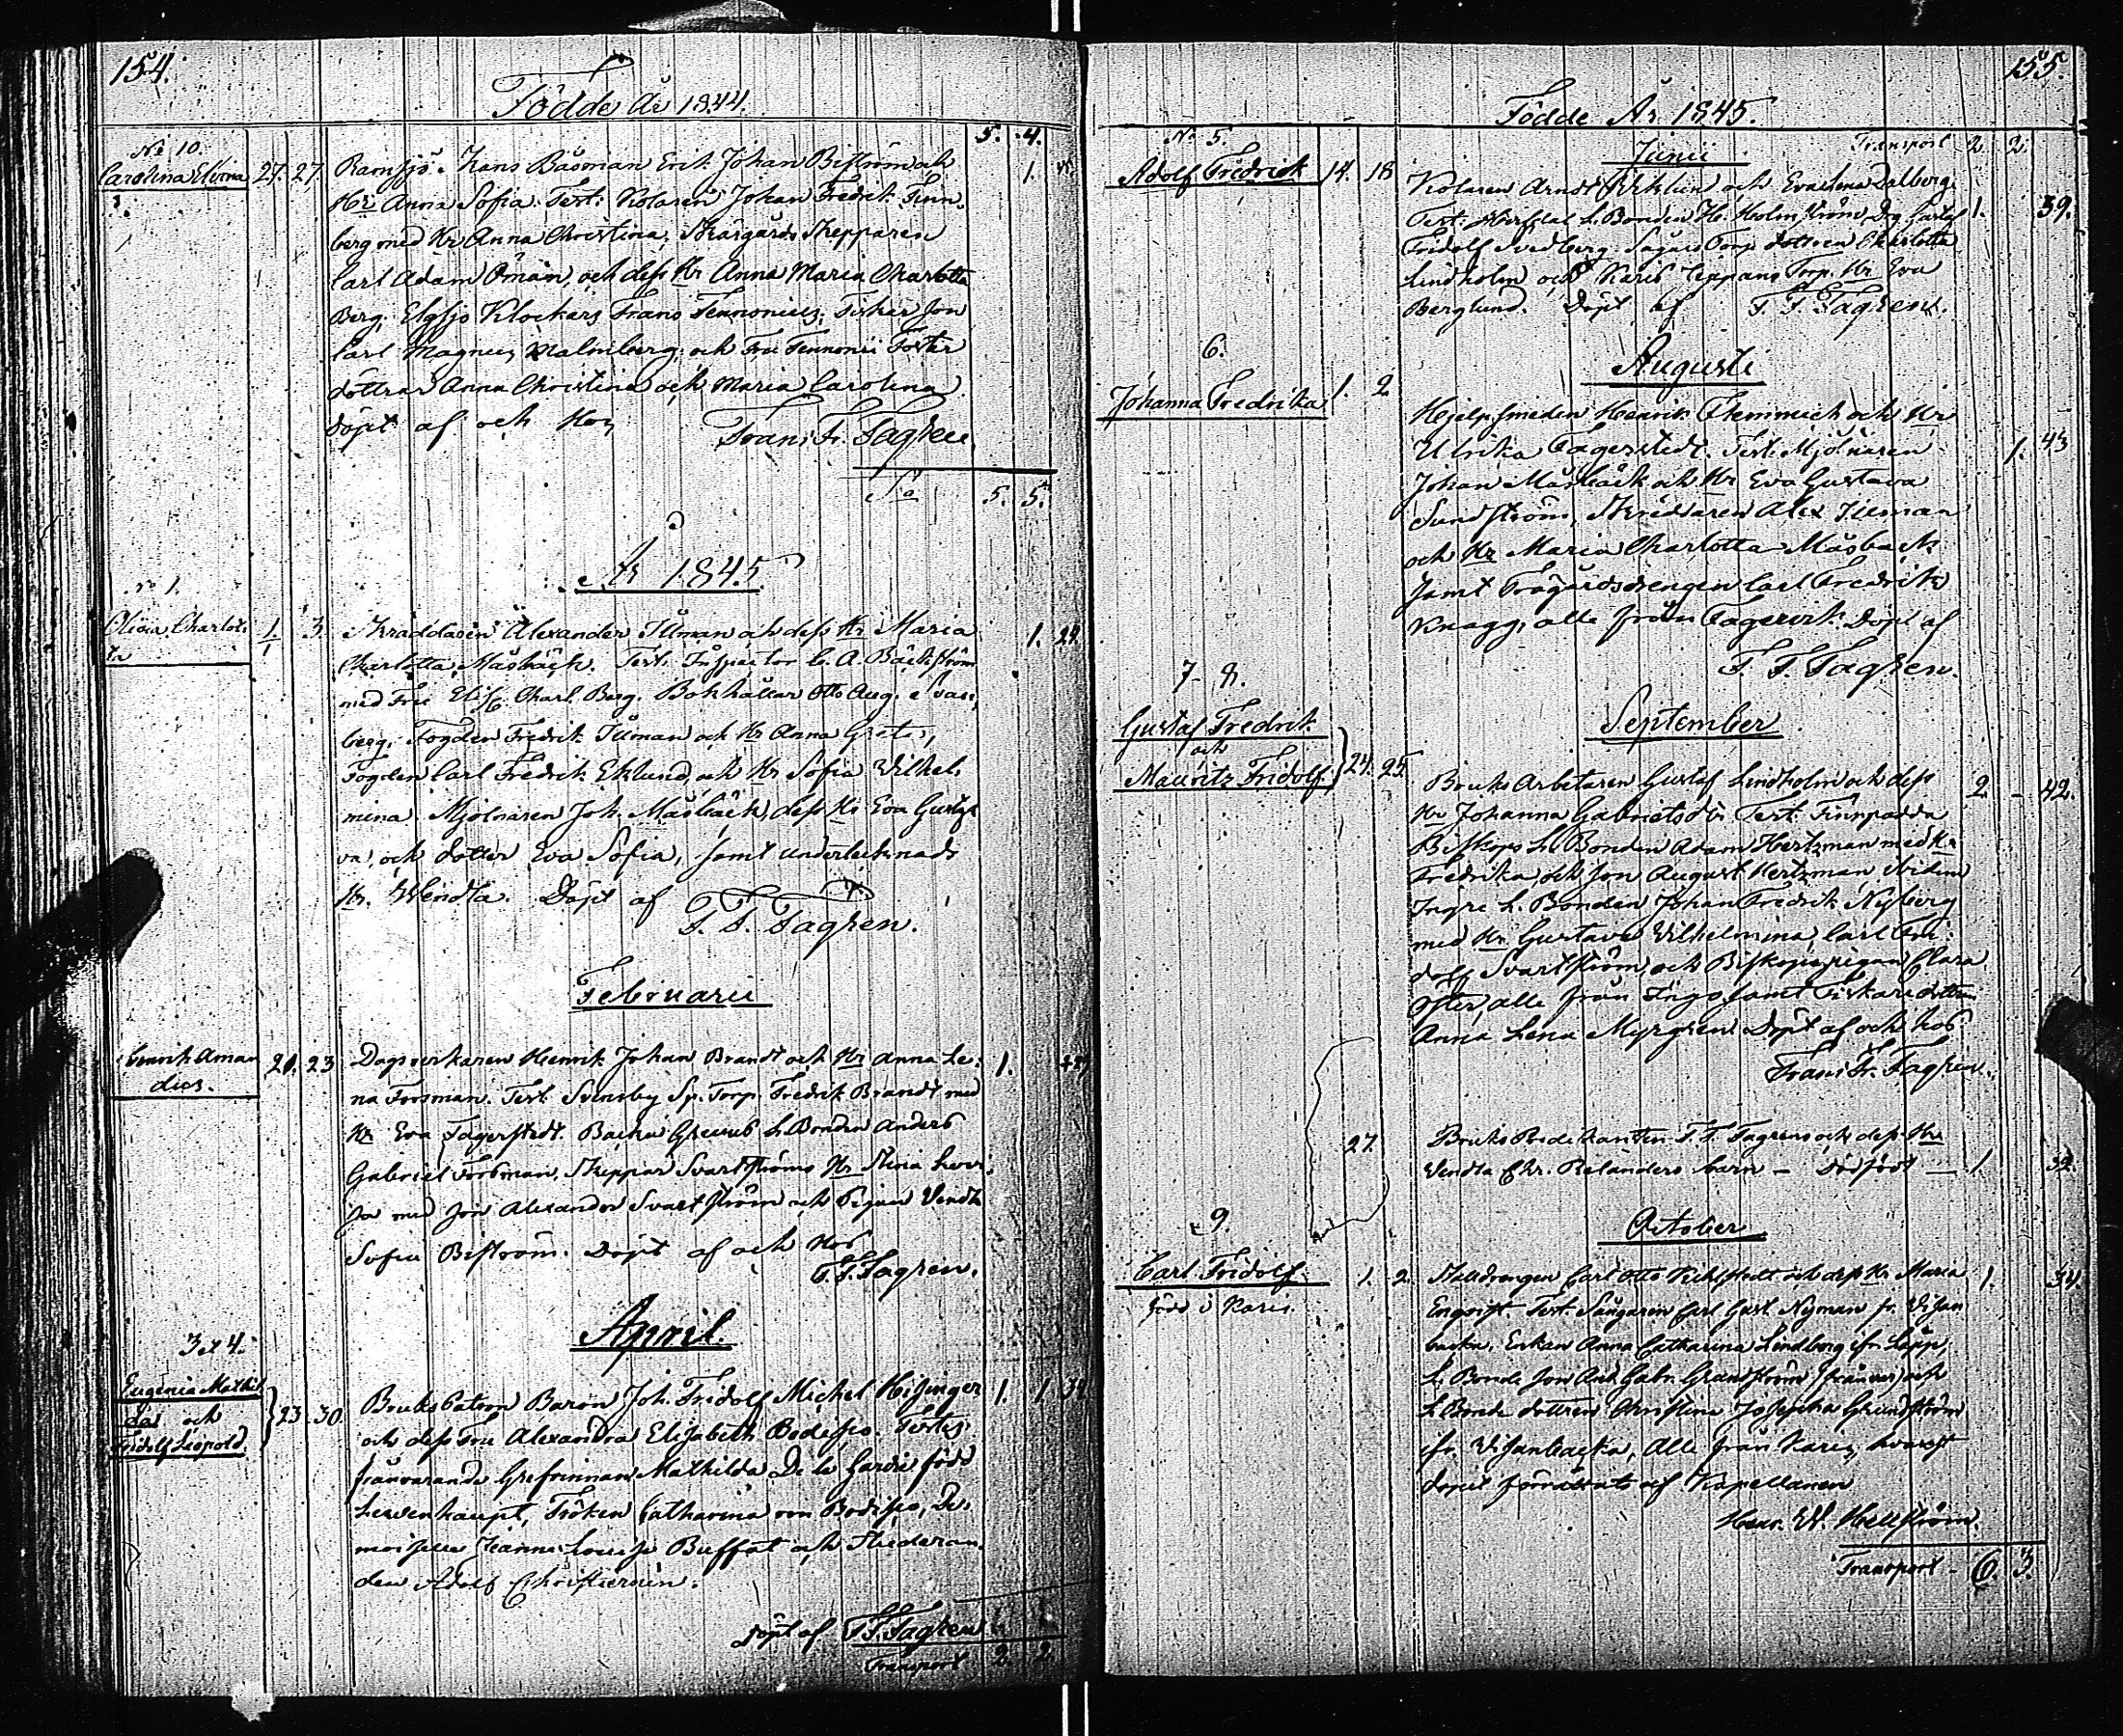 154.
Födde År 1844.
5. 4.
No 10.
Carolina Elvina 27. 27 Ramsjö. Hans Båsman Erik Johan Biström och 1.
Hr Anna Sofia. Test: Kolaren Johan Fredrik Finn-
berg med Hr Anna Christina; Skärgårds Skepparen
Carl Adam Öman, och dess Hr Anna Maria Charlotta
Berg; Elgsjö Klockars Frans Tennonius; Fiskar Son
Carl Magnus Malmberg; och Fru Tennonii Foster
döttrar Anna Christina och Maria Carolina
Döpt af och Hos Frans Fr. Fagren
Sa 5. 5.
År 1845.
No 1.
Olivia Charlot- 1. 3. Skräddaren Alexander Tilman och dess Hr Maria 1. 24.
ta
Charlotta Måsbäck. Test. Inspector C. A. Bäckström
med Fru Elis. Charl. Berg. Bokhållar Otto Aug. Svan-
berg. Fogden Fredrik Tilman och Hr Anna Greta,
Fogden Carl Fredrik Eklund och Hr Sofia Vilhel-
mina. Mjölnaren Joh. Måsbäck, dess Hr Eva Gusta-
va, och dotter Eva Sofia, samt undertecknads
Hr. Wendla. Döpt af F. F. Fagren.
Februarii
Henrik Aman 20. 23 Dagsverkaren Henrik Johan Brandt och Hr Anna Le- 1.
dus.
na Forsman. Test. Svensby Sp. Torp. Fredrik Brandt med
Hr Eva Fagerstedt. Backa Greuus L. Bonden Anders
Gabriel Forsman, Skeppar Svartströms Hr Stina Lovi-
sa med Son Alexander Svartström och Pigan Vendla
Sofia Biström. Döpt af och Hos
F. F. Fagren.
April.
3 et 4.
Eugenia Mathil-
da och
Fridolf Leopold. 23. 30. Bruks Patron Baron Joh. Fridolf Michel Hisinger 1. 1. 34
och dess Fru Alexandra Elisabeth Bodisco. Testes
frånvarande Grefvinnan Mathilda De la Gardie född
Lewenhaupt, Fröken Catharina von Bodisco, De-
moiselle Jeanne Louise Buffat och Studeran-
den Adolf Christiernin.
Döpt af F. F. Fagren
Transport 2. 2.
155.
Födde År 1845.
No 5. Junii Transport 2. 2.
Adolf Fredrick 14. 18 Kolaren Arndt Eklund och Eva Lena Dalberg.
Test. Westdal L. Bonden H. Holmström, Drg. Gustaf 1. 39.
Fridolf Svedberg. Sågars Torp. dottren Charlotta
Lindholm och Karis Läppans Torp. Hr Eva
Berglund. Döpt af F. F. Fagren.
6. Augusti
Johanna Fredrika 1. 2 Hjelpsmeden Henrik Flemmich och Hr
Ulrika Fagerstedt. Test. Mjölnaren 1. 43
Johan Måsbäck och Hr Eva Gustava
Sundström, Skräddaren Alex Tilman
och Hr Maria Charlotta Måsbäck
samt Trägårdsdrengen Carl Fredrik
Knagg, alle från Fagervik. Döpt af
F. F. Fagren.
7-8. September
Gustaf Fredrik
och
Mauritz Fridolf. 24. 25. Bruks Arbetaren Gustaf Lindholm och dess 2. - 42.
Hr Johanna Gabrielsdr. Test. Finnpadda
Biskops L. Bonden Adam Hertzman med Hr
Fredrika, och Son August Hertzman, ibidem
Ingre L. Bonden Johan Fredrik Nyberg
med Hr Gustava Vilhelmina, Carl Fri-
dolf Svartström, och Biskops pigan Clara
Öster, alle från Ingo samt Fiskare dottren
Anna Lena Myrgren Döpt af och hos
Frans Fr. Fagren.
27. Bruks Predikanten F. F. Fagrens och dess Hr
Vendla Chr. Relanders barn - dödfödt - 1. 39.
October
9.
Carl Fridolf. 1. 2. Stalldrengen Carl Otto Kihlstedt och dess Hr Maria 1. 34.
född i Karis.
Enqvist. Test. Sångaren Carl Gust. Nyman fr. Visan
backa, Enkan Anna Catharina Lindberg ifr. Läpp,
L. Bonde Son And. Gabr. Grundström (frånvar) och
L. Bonde dottren Christina Josepha Grundström
ifr. Visanbacka, Alle från Karis, hvarest
dopet förrättats af Kapellanen
Henr. W. Hellström.
Transport - 6. 3.